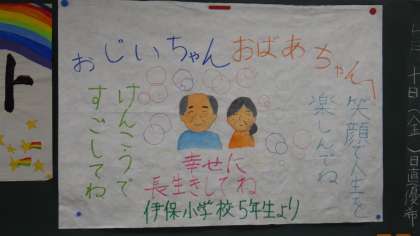 おじいちゃん おばあちゃんへ
笑顔で人生を
楽しんでね
けんこうで
すごしてね
幸せに
長生きしてね
伊保小学校5年生より
ト